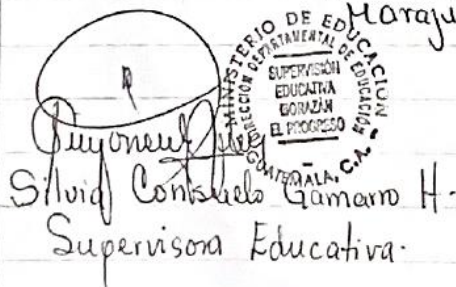 MINISTERIO DE EDUCACIÓN
DIRECCIÓN DEPARTAMENTAL DE EDUCACIÓN
SUPERVISIÓN
EDUCATIVA
MORAZÁN
EL PROGRESO
GUATEMALA, C.A.
Silvia Consuelo Gamarro H.
Supervisora Educativa.